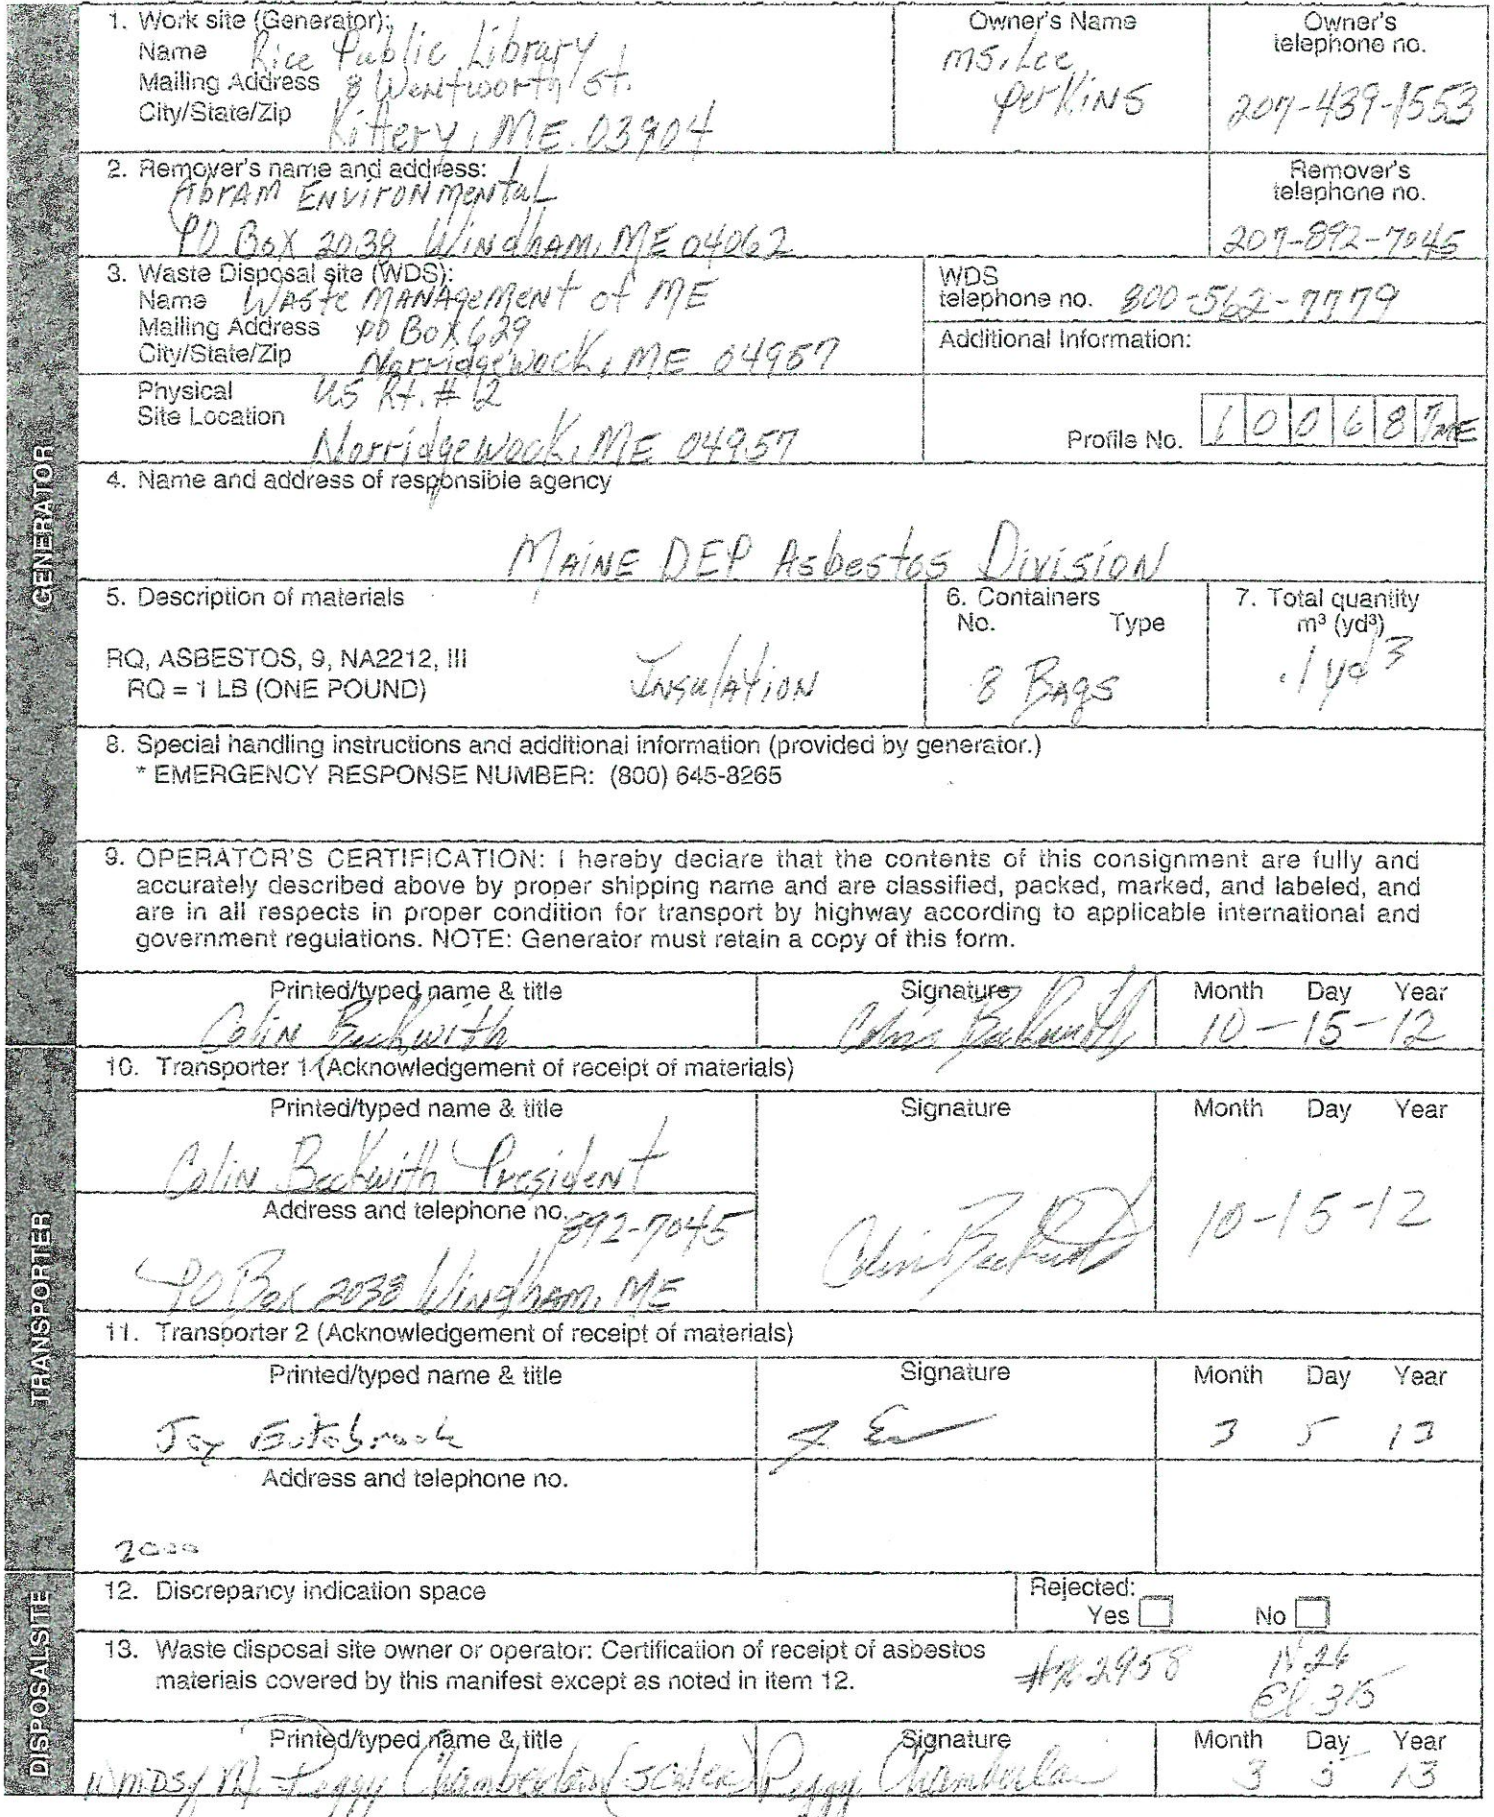 1. Work site (Generator):
Name Rice Public Library
Mailing Address 8 Wentworth St.
City/State/Zip Kittery, ME. 03904
Owner's Name
MS. Lee
PerKiNS
Owner's
telephone no.
207-439-1553
2. Remover's name and address:
AbrAM ENVirONmeNtaL
PO Box 2038 WiNdhAM, ME 04062
Remover's
telephone no.
207-892-7045
3. Waste Disposal site (WDS):
Name WASte MANAgeMeNt of ME
Mailing Address PO BoX 629
City/State/Zip Norridgewock, ME 04957
WDS
telephone no. 800-562-7779
Additional Information:
Physical
Site Location
US Rt. # 2
Norridgewock, ME 04957
Profile No. 1 0 0 6 8 7 ME
4. Name and address of responsible agency
MAiNE DEP Asbestos Division
5. Description of materials
RQ, ASBESTOS, 9, NA2212, III
RQ = 1 LB (ONE POUND)
INsulAtioN
6. Containers
No. Type
8 BAgs
7. Total quantity
m³ (yd³)
.1 yd³
8. Special handling instructions and additional information (provided by generator.)
* EMERGENCY RESPONSE NUMBER: (800) 645-8265
9. OPERATOR'S CERTIFICATION: I hereby declare that the contents of this consignment are fully and
accurately described above by proper shipping name and are classified, packed, marked, and labeled, and
are in all respects in proper condition for transport by highway according to applicable international and
government regulations. NOTE: Generator must retain a copy of this form.
GENERATOR
Printed/typed name & title
Colin Beckwith
Signature
Colin Beckwith
Month Day Year
10-15-12
10. Transporter 1 (Acknowledgement of receipt of materials)
Printed/typed name & title
Colin Beckwith President
Address and telephone no.
892-7045
PO Box 2038 Windham, ME
Signature
Colin Beckwith
Month Day Year
10-15-12
11. Transporter 2 (Acknowledgement of receipt of materials)
Printed/typed name & title
Jay
Signature
Month Day Year
3 5 13
Address and telephone no.
2000
TRANSPORTER
12. Discrepancy indication space
Rejected:
Yes No
13. Waste disposal site owner or operator: Certification of receipt of asbestos
materials covered by this manifest except as noted in item 12.
N 26
El. 315
Printed/typed name & title
Peggy Chamberlain
Signature
Peggy Chamberlain
Month Day Year
3 5 13
DISPOSAL SITE